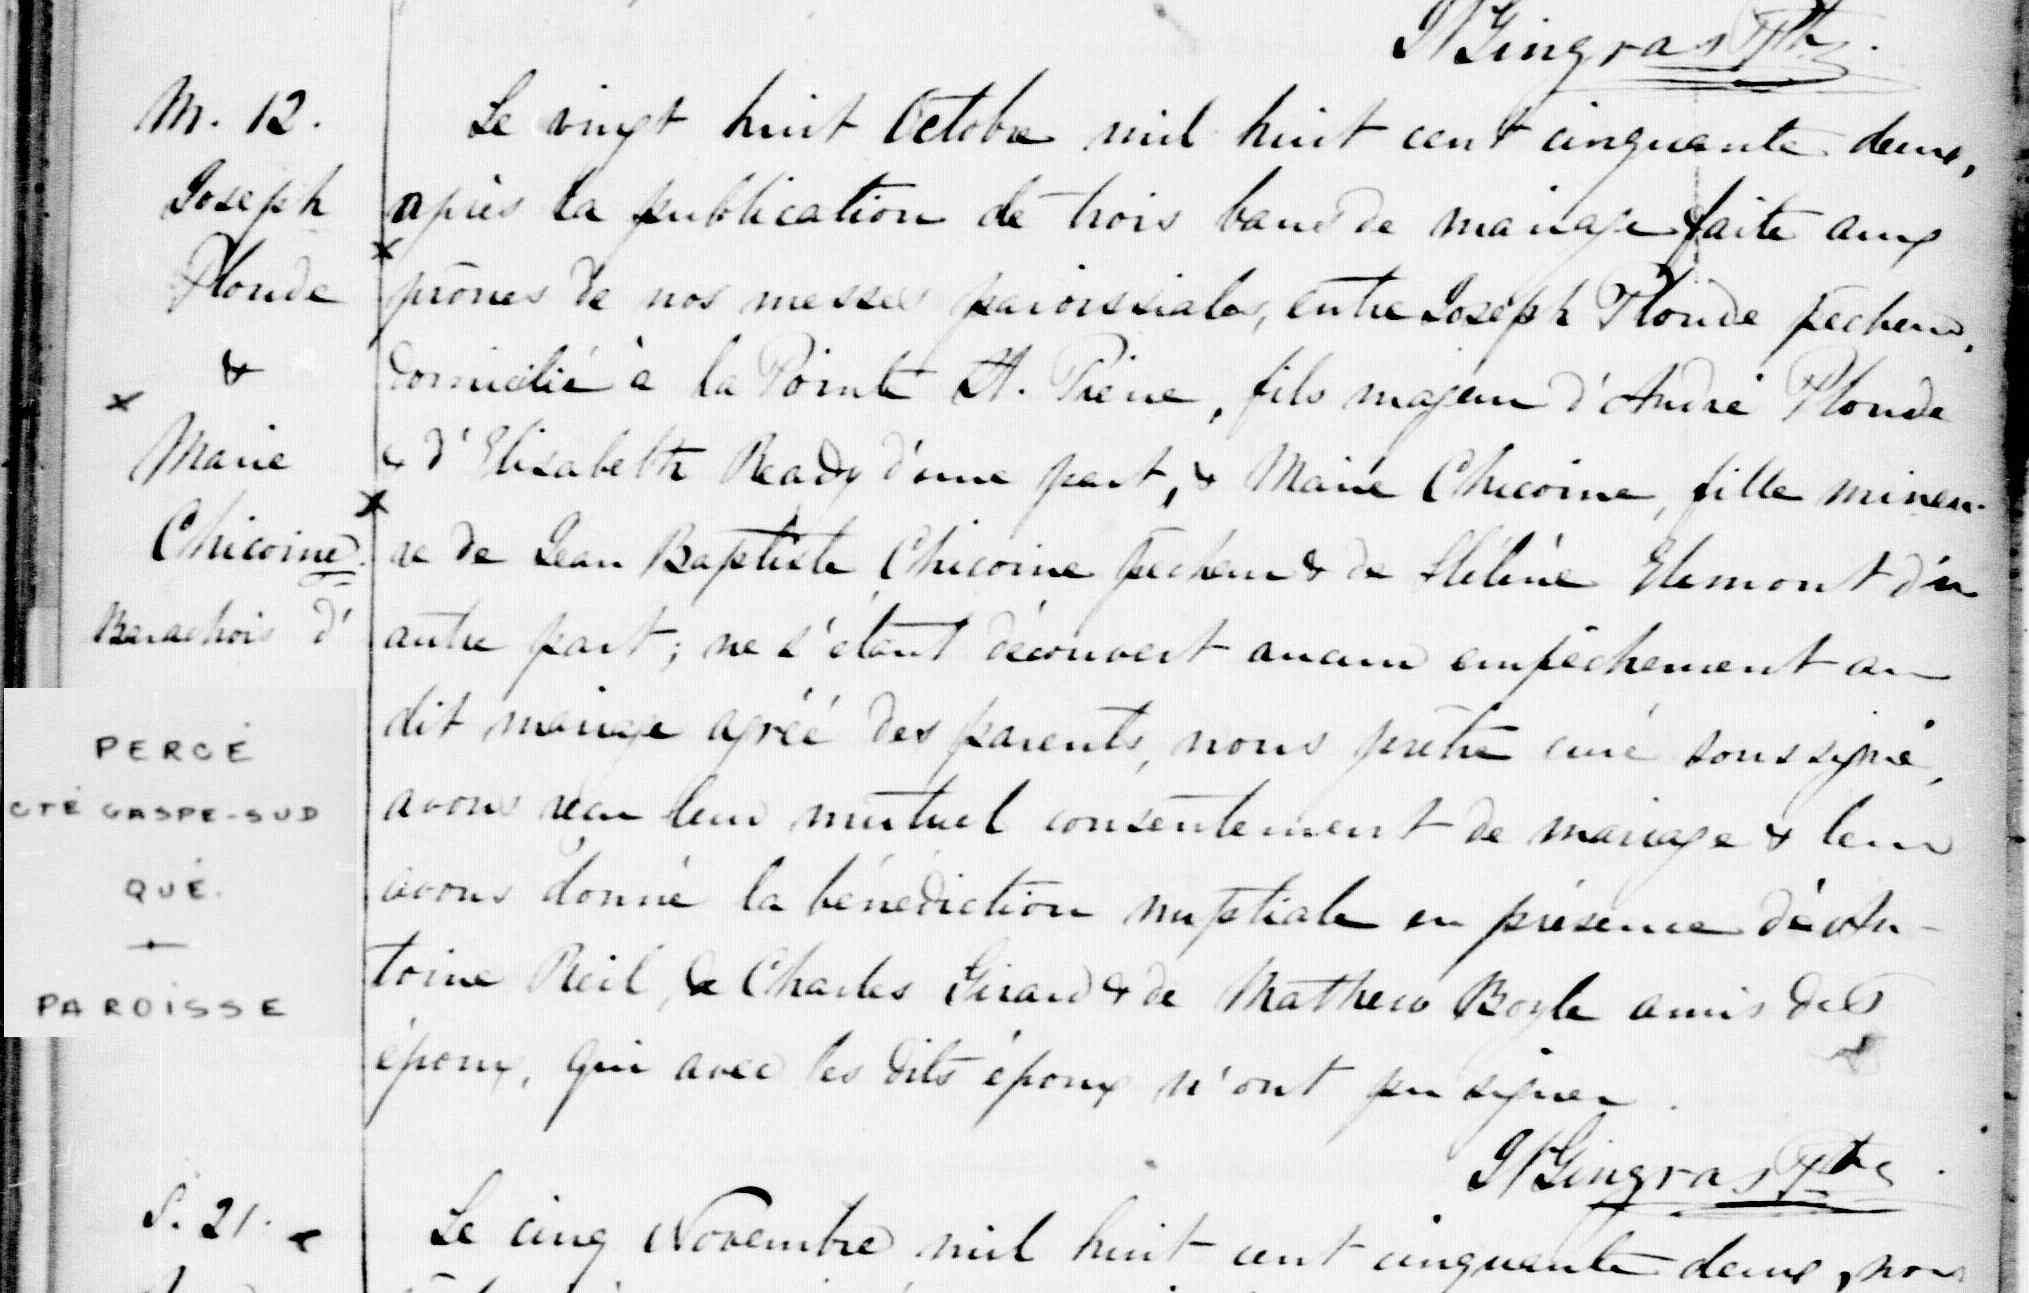 NGingras Ptre.
M. 12.
Joseph
Plourde
&
Marie
Chicoine.
Barachois d'
PERCÉ
CTÉ GASPÉ-SUD
QUÉ.
PAROISSE
Le vingt huit Octobre mil huit cent cinquante deux,
après la publication de trois bans de mariage faite aux
prônes de nos messes paroissiales, entre Joseph Plourde pêcheur,
domicilié à la Pointe St. Pierre, fils majeur d'André Plourde
& d'Elisabeth Ready d'une part, & Marie Chicoine, fille mineu-
re de Jean Baptiste Chicoine pêcheur & de Hélène Elemont d'u
autre part; ne s'étant découvert aucun empêchement au
dit mariage agréé des parents, nous prêtre curé soussigné,
avons reçu leur mutuel consentement de mariage & leur
avons donné la bénédiction nuptiale en présence d'An-
toine Reil, de Charles Girard & de Mathew Boyle amis de l'
époux, qui avec les dits époux n'ont pu signer.
NGingras Ptre.
S. 21.
Le cinq Novembre mil huit cent cinquante deux, nous